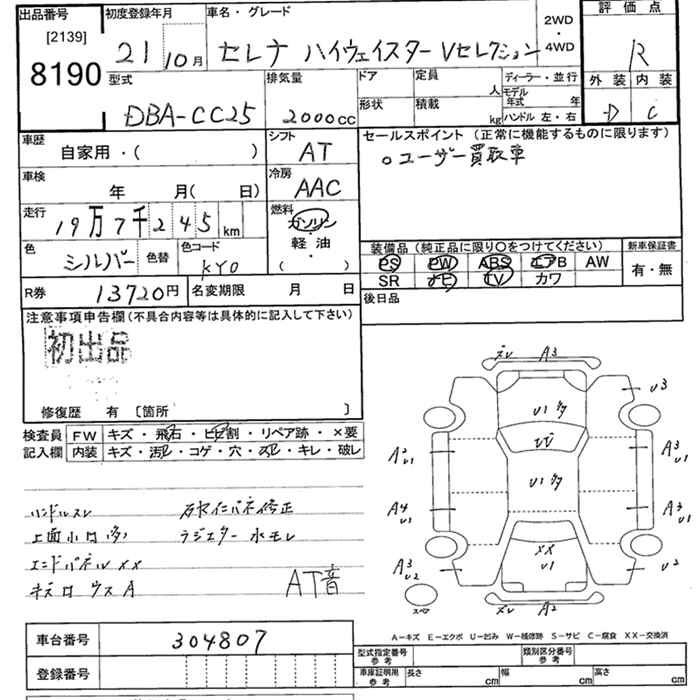 出品番号
[2139]
8190
初度登録年月
21 10月
車名・グレード
セレナ ハイウェイスター Vセレクション
2WD
・
4WD
評価点
R
外装 内装
D C
型式
DBA-CC25
排気量
2000cc
ドア
定員
人
形状
積載
kg
ディーラー・並行
モデル
年式 年
ハンドル 左・右
車歴
自家用・( )
シフト
AT
車検
年 月( 日)
冷房
AAC
走行
19万7千245km
燃料
ガソリン
・
軽油
( )
色
シルバー
色替
色コード
KY0
R券
13720円
名変期限 月 日
セールスポイント (正常に機能するものに限ります)
○ユーザー買取車
装備品(純正品に限り○をつけてください)
新車保証書
PS PW ABS エアB AW
有・無
SR ナビ TV カワ
後日品
注意事項申告欄(不具合内容等は具体的に記入して下さい)
初出品
修復歴 有 〔箇所 〕
検査員
記入欄
FW キズ・飛石・ヒビ割・リペア跡・×要
内装 キズ・汚レ・コゲ・穴・スレ・キレ・破レ
ハンドルスレ
上面小凹多
エンドパネルXX
キズ凹ウスA
右セイドパネ修正
ラジエター水モレ
AT音
スレ A3
U1多
U3
A2
U1
A3
U1
U1多
A4
U1
A3
U1
XX
U1
A3
U2
U2
スペア
スレ A2
A-キズ E-エクボ U-凹み W-補修跡 S-サビ C-腐食 XX-交換済
車台番号
304807
登録番号
型式指定番号
参考
類別区分番号
参考
車庫証明用
参考
長さ cm 幅 cm 高さ cm